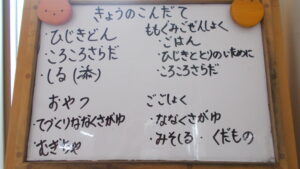 きょうのこんだて
・ひじきどん
・ころころさらだ
・しる(添)
ももぐみごぜんしょく
・ごはん
・ひじきととりのいために
・ころころさらだ
おやつ
てづくりななくさがゆ
むぎちゃ
ごごしょく
・ななくさがゆ
・みそしる ・くだもの